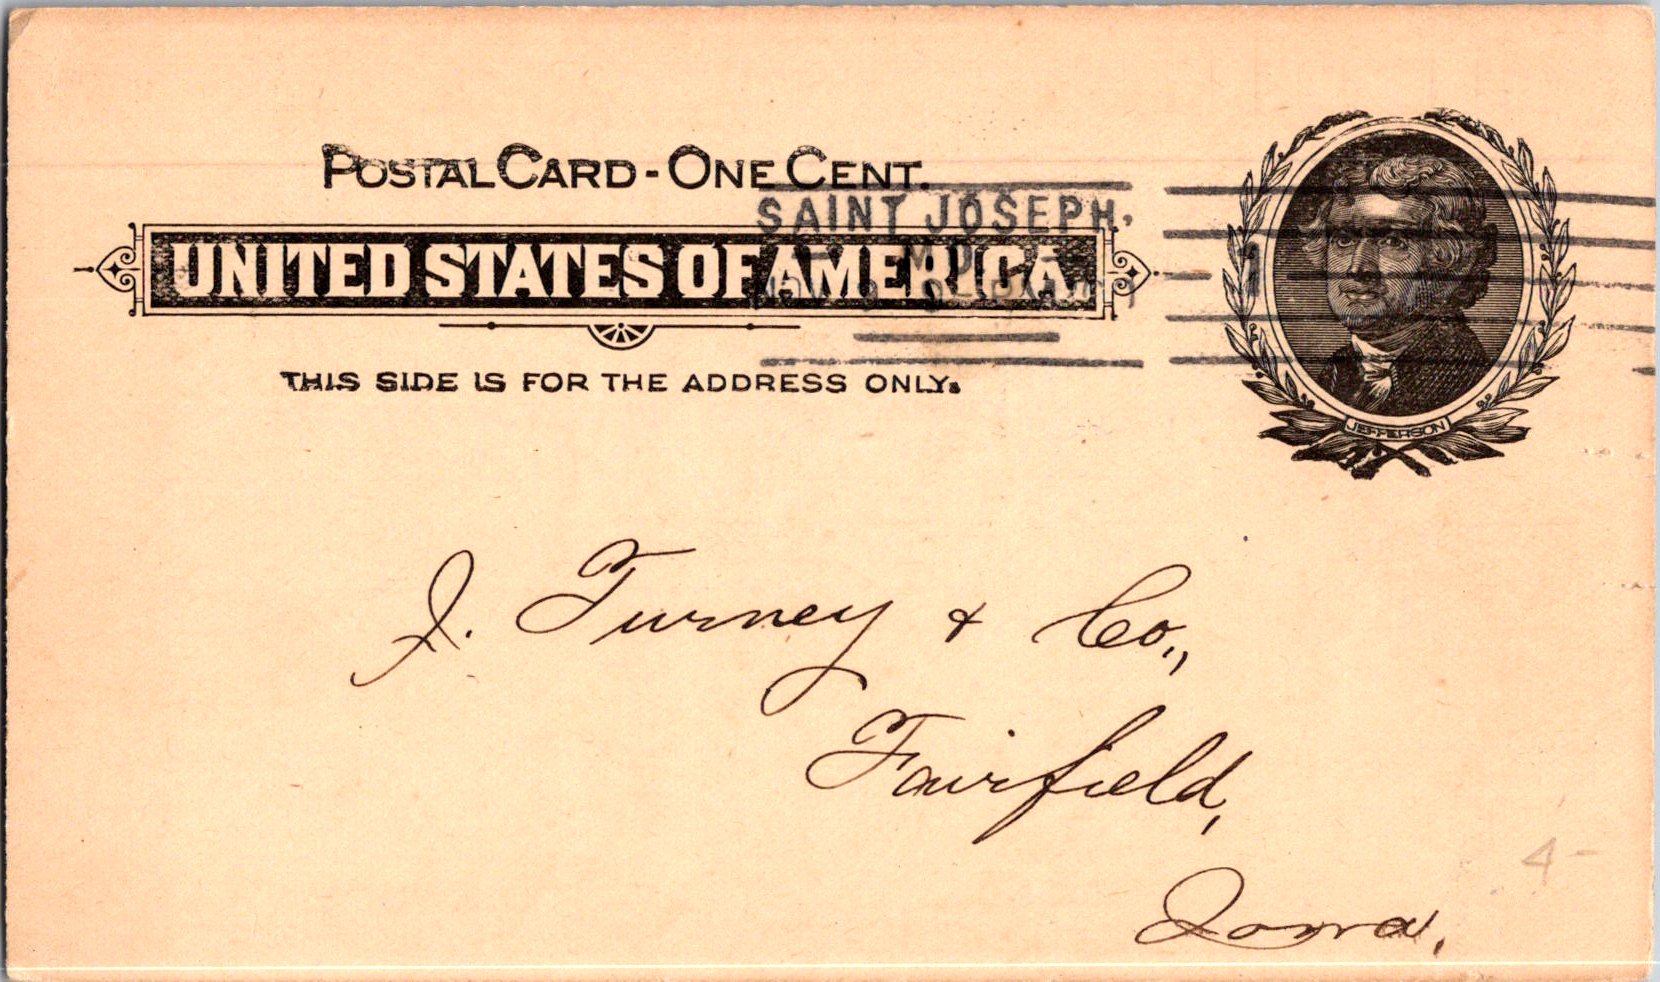 POSTAL CARD - ONE CENT.
SAINT JOSEPH,
MO.
UNITED STATES OF AMERICA
THIS SIDE IS FOR THE ADDRESS ONLY.
JEFFERSON
J. Turney & Co.,
Fairfield,
Iowa.
4-